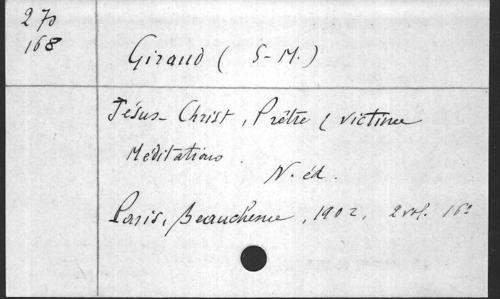 270
168
Giraud ( S-M.)
Jésus-Christ, Prêtre & victime
Méditations.
N. éd.
Paris, Beauchesne, 1902, 2 vol. 16°